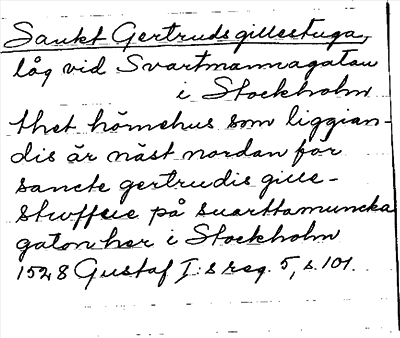 Sankt Gertruds gillestuga,
låg vid Svartmannagatan
i Stockholm
thet hörnehus som liggian-
dis är näst nordan för
sancte gertrudis gille-
stuffue på suarttamuncka
gaton her i Stockholm
1528 Gustaf I:s reg. 5, s. 101.